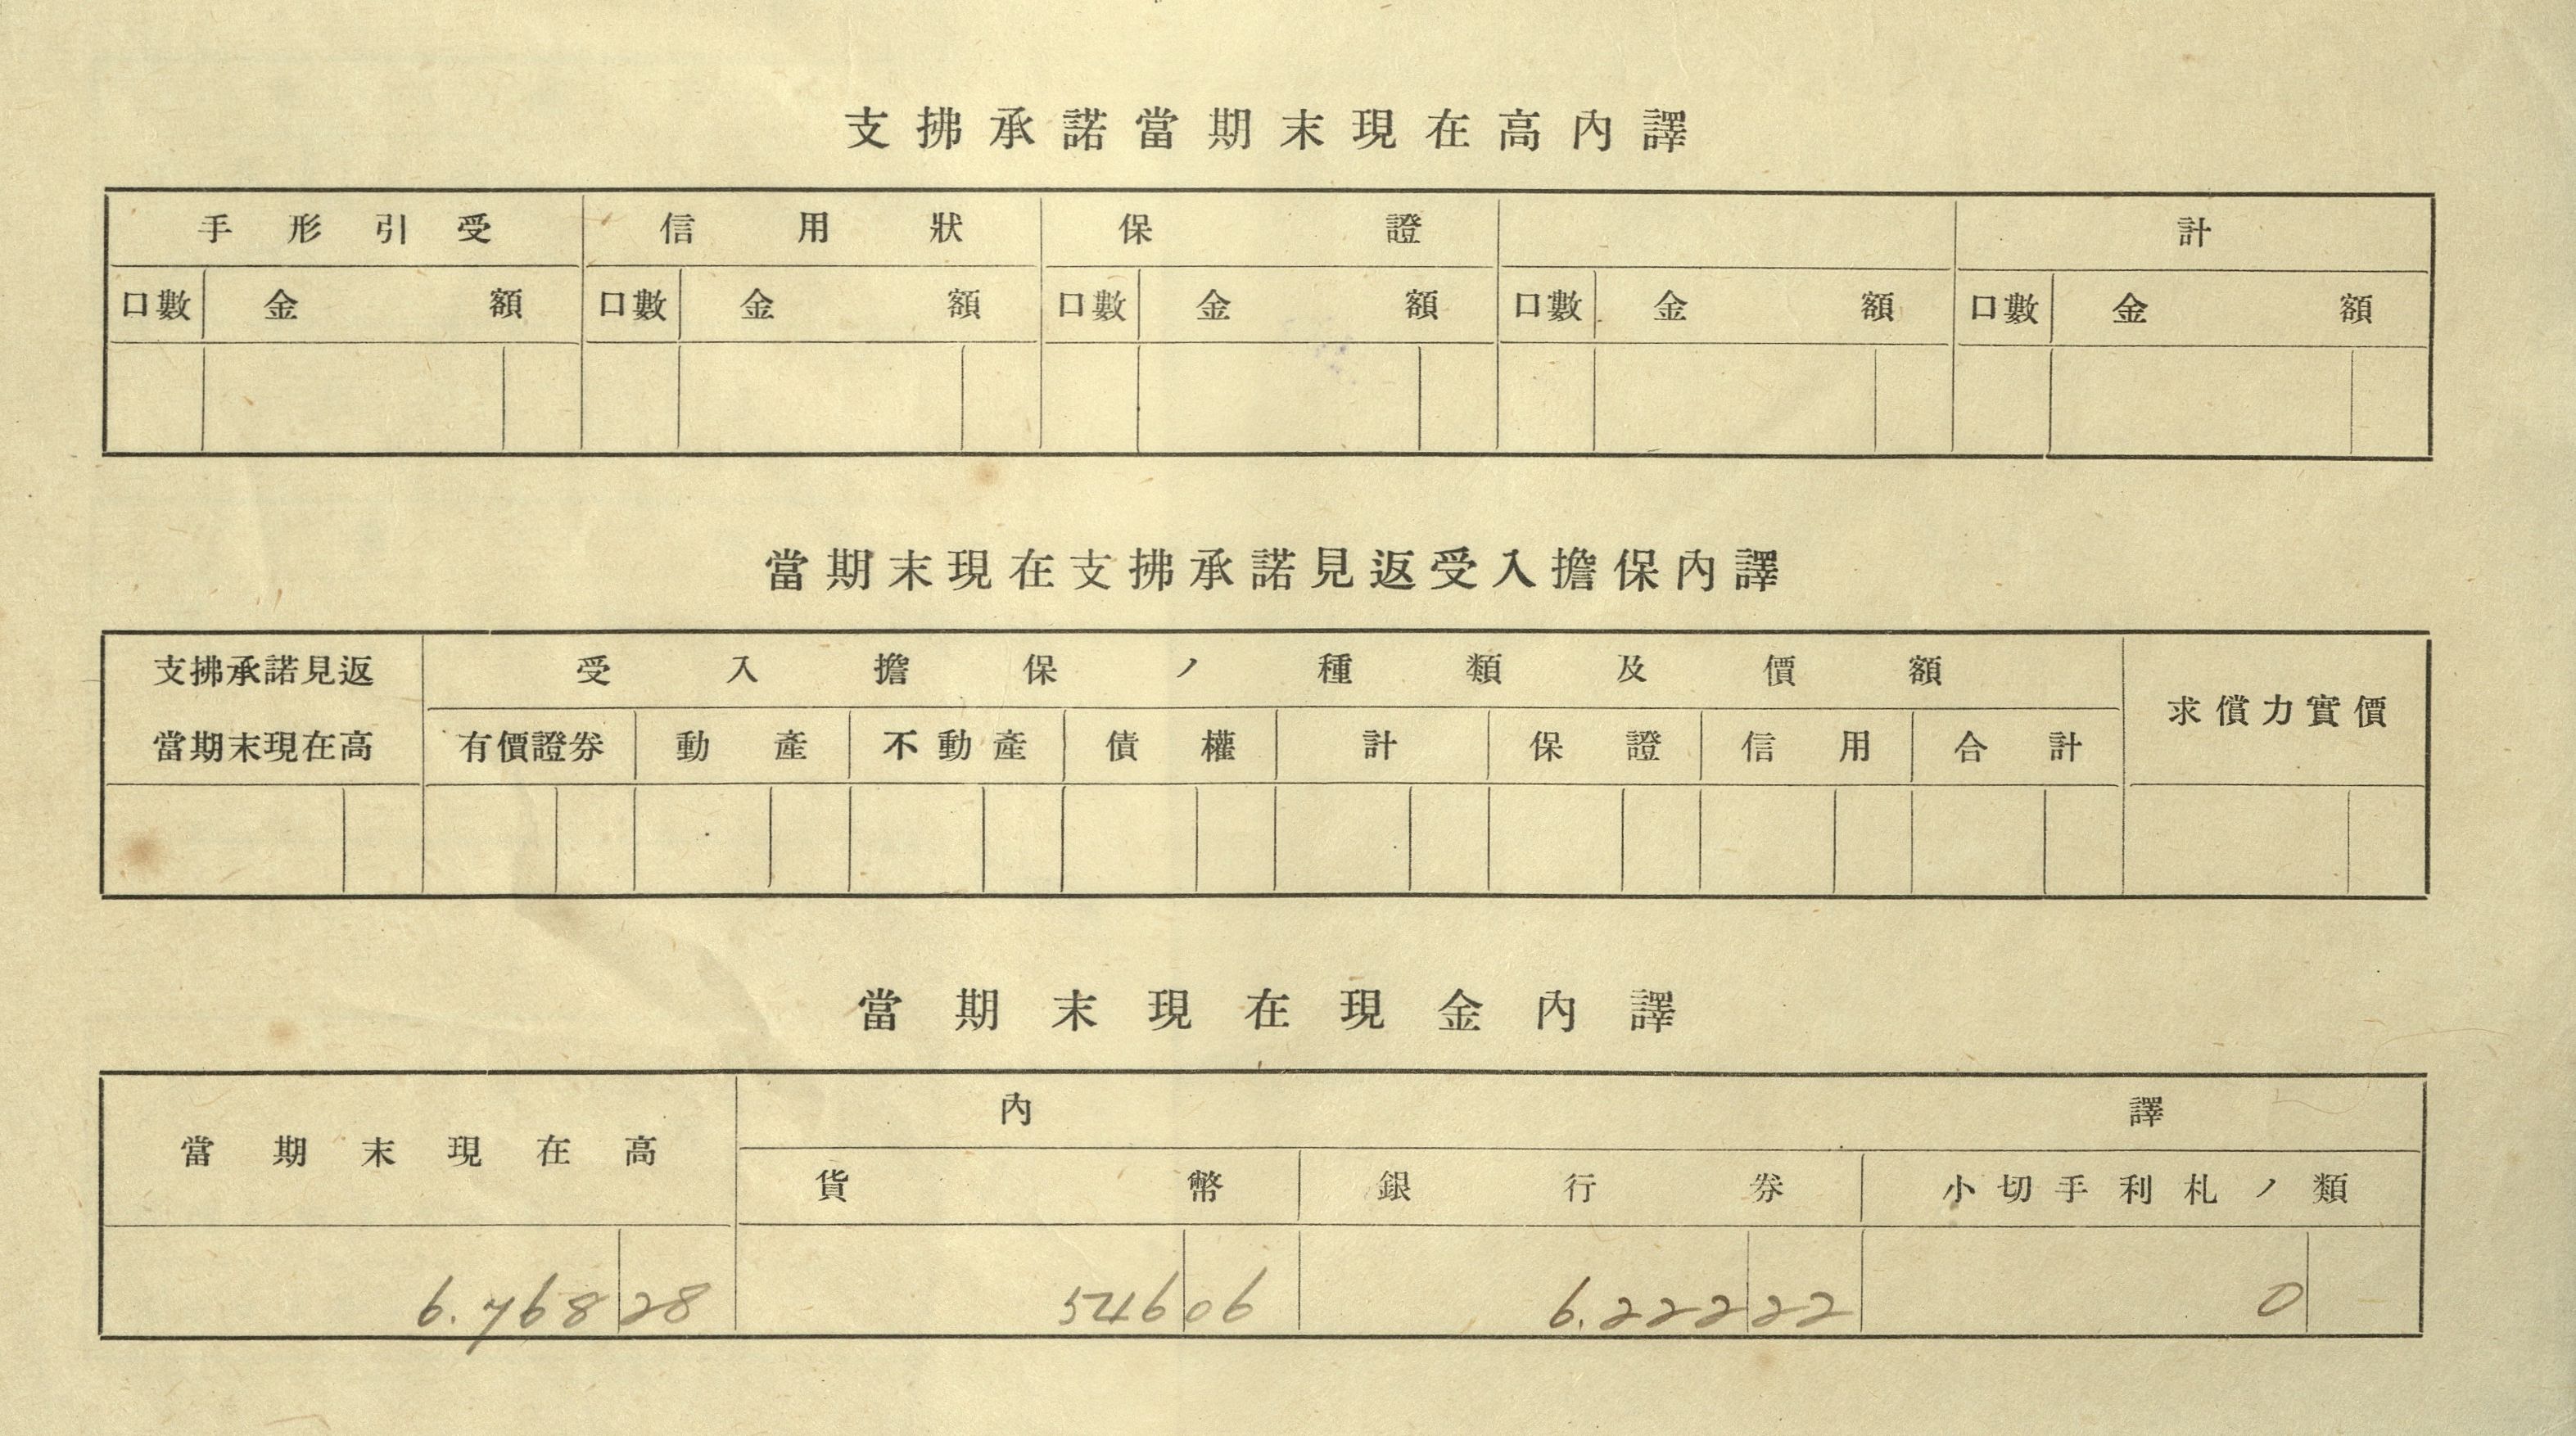 支拂承諾當期末現在高內譯
手形引受 信用狀 保證 計
口數 金額 口數 金額 口數 金額 口數 金額 口數 金額
當期末現在支拂承諾見返受入擔保內譯
支拂承諾見返 受入擔保ノ種類及價額
求償力實價
當期末現在高 有價證券 動產 不動產 債權 計 保證 信用 合計
當期末現在現金內譯
內譯
當期末現在高
貨幣 銀行券 小切手利札ノ類
6.768 28 546 06 6.222 22 0